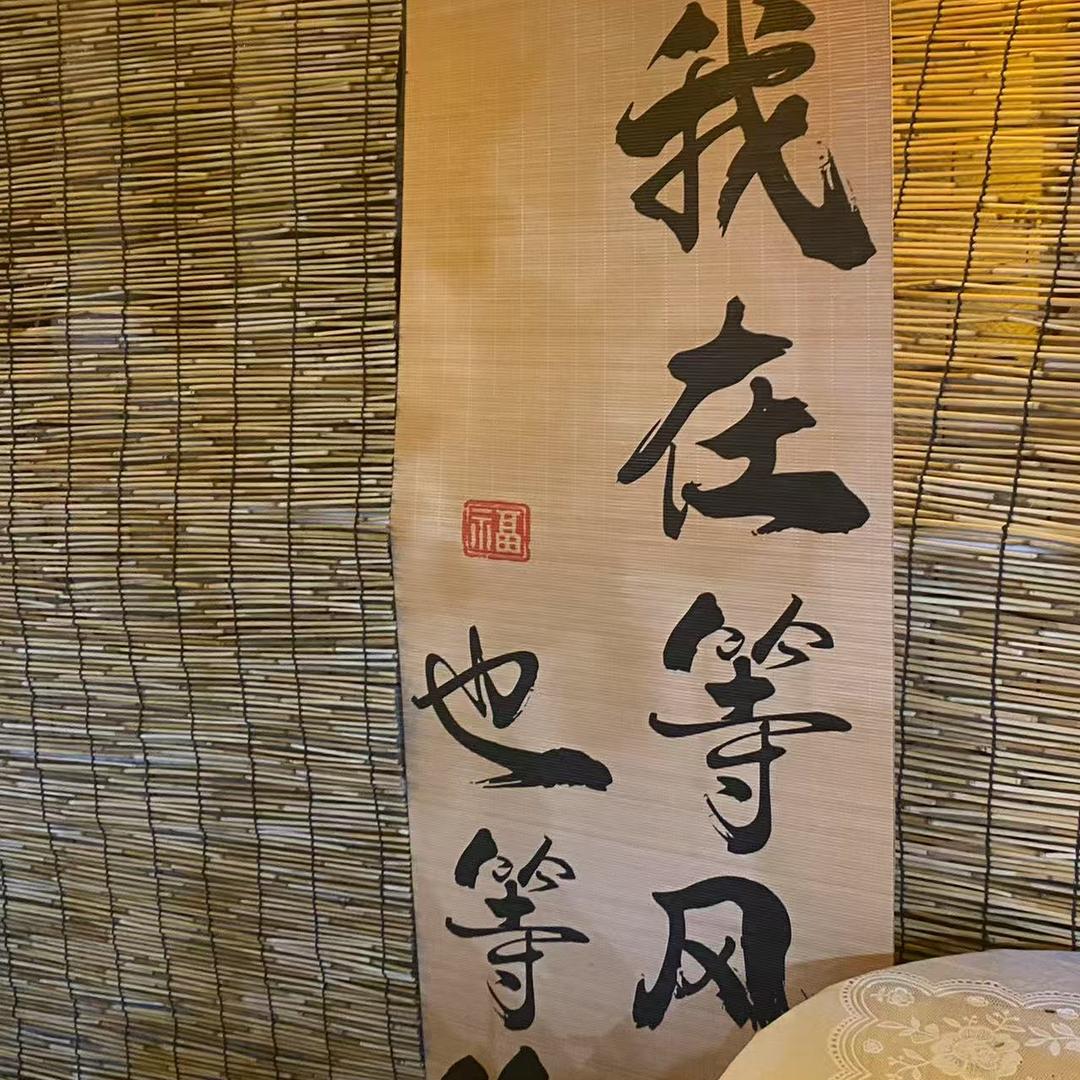 我在等风
也等
福